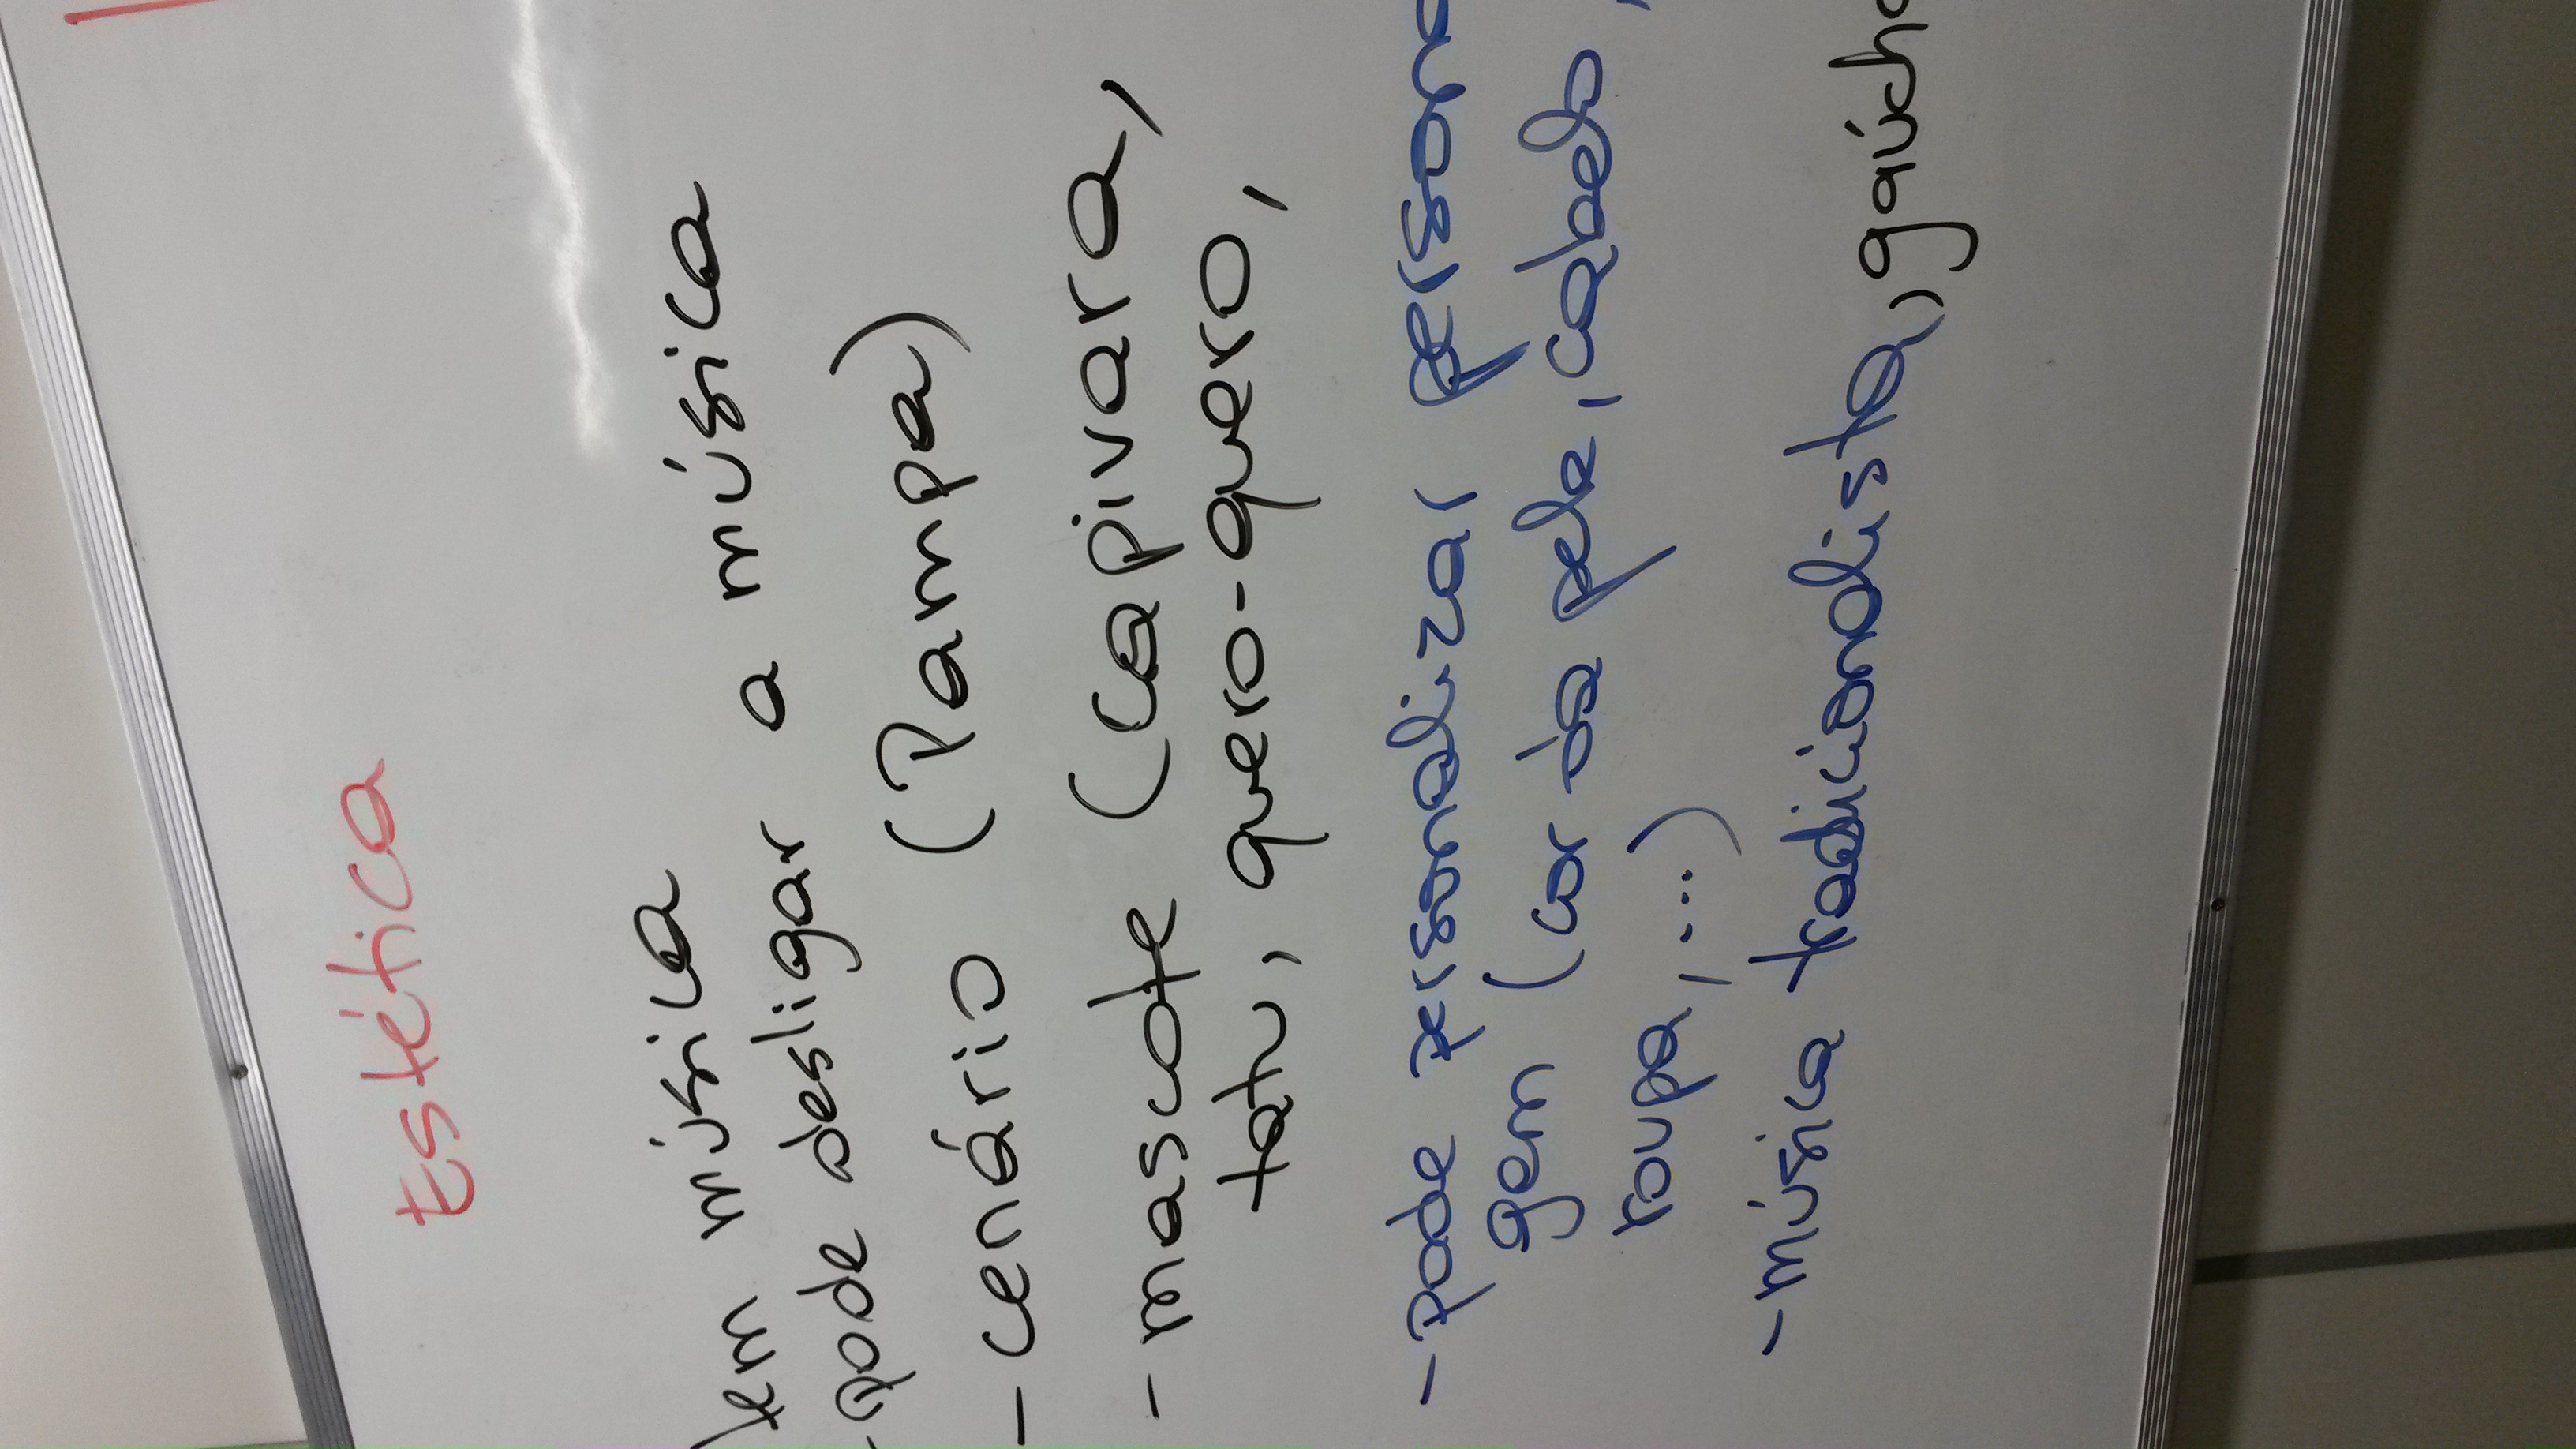 Estética
tem música
-pode desligar a música
-cenário (Pampa)
-mascote (capivara,
tatu, quero-quero,
-pode personalizar persona
gem (cor da pele, cabelo,
roupa, ...)
-música tradicionalista, gaúcha